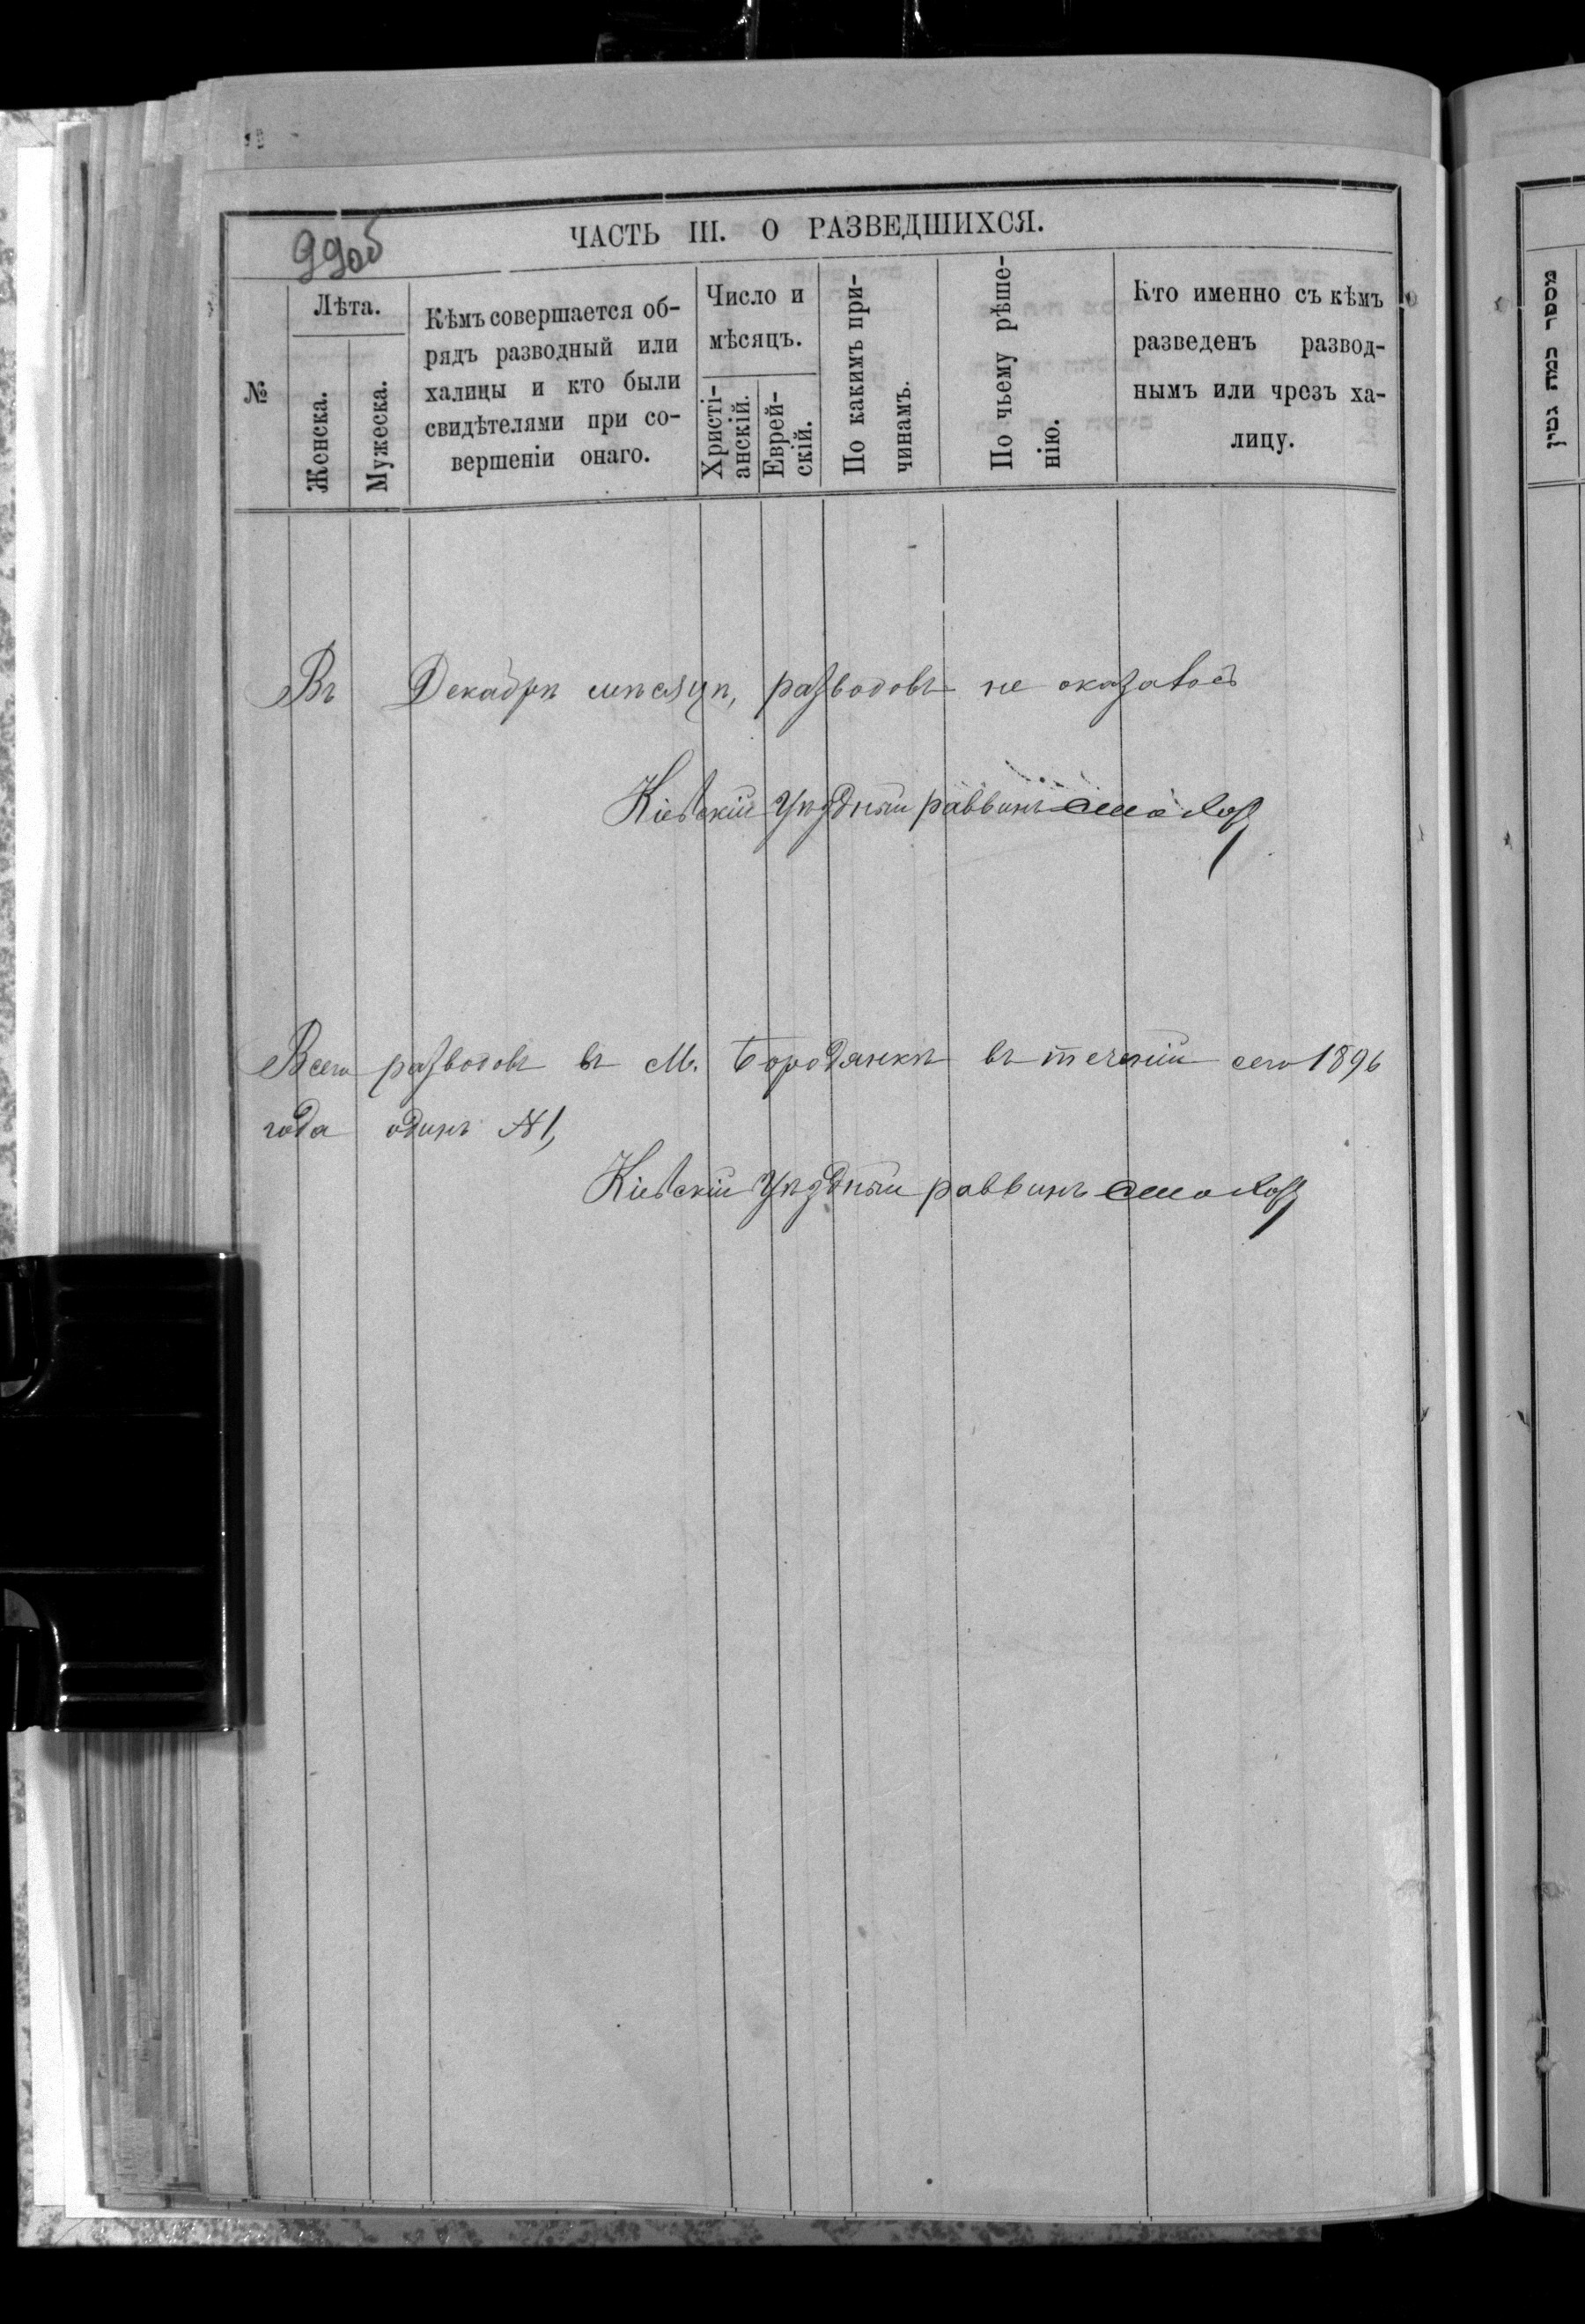 99об
ЧАСТЬ III. О РАЗВЕДШИХСЯ.
№
Лѣта.
Женска.
Мужеска.
Кѣмъ совершается об-
рядъ разводный или
халицы и кто были
свидѣтелями при со-
вершеніи онаго.
Число и
мѣсяцъ.
Христі-
анскій.
Еврей-
скій.
По какимъ при-
чинамъ.
По чьему рѣше-
нію.
Кто именно съ кѣмъ
разведенъ развод-
нымъ или чрезъ ха-
лицу.
Въ Декабрѣ мѣсяцѣ, разводовъ не оказалось
Кіевскій Уѣздный раввинъ
Всего разводовъ въ М. Бородянкѣ въ теченіи сего 1896
года одинъ №1,
Кіевскій Уѣздный раввинъ
מספר כמה גטין